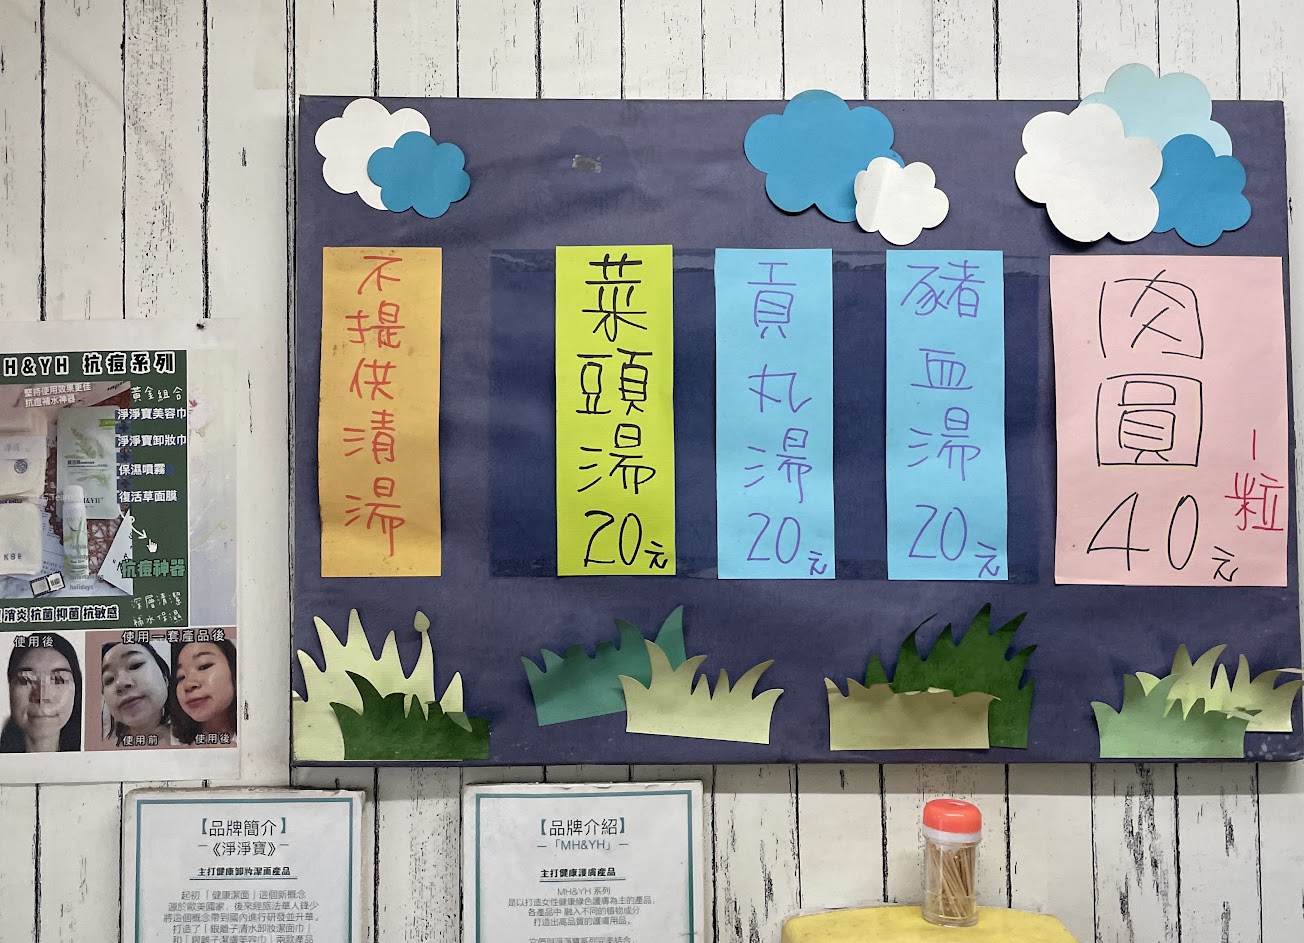 肉圓40元
一粒
豬血湯20元
貢丸湯20元
菜頭湯20元
不提供清湯
H&YH 抗痘系列
堅持使用效果更佳
抗痘補水神器
黃金組合
淨淨寶美容巾
淨淨寶卸妝巾
保濕噴霧
復活草面膜
抗痘神器
深層清潔
補水保濕
消炎 抗菌 抑菌 抗敏感
使用後
使用一套產品後
使用前
使用後
【品牌簡介】
《淨淨寶》
主打健康卸妝潔面產品
起初「健康潔面」這個新概念
源於歐美國家，後來經旅法華人鋒少
將這個概念帶到國內進行研發並升華。
打造了「銀離子清水卸妝潔面巾」
和「銀離子潔膚美容巾」兩款產品
【品牌介紹】
—「MH&YH」—
主打健康護膚產品
MH&YH 系列
是以打造女性健康綠色護膚為主的產品，
各產品中 融入不同的植物成分
打造出高品質的護膚用品。
它們與淨淨寶系列完美結合